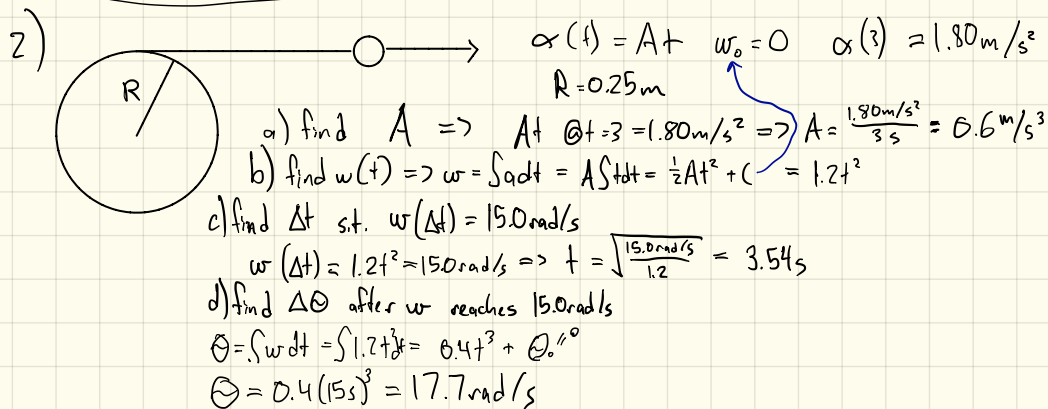 2)
R
α(t) = At w₀ = 0 α(3) = 1.80 m/s²
R = 0.25 m
a) find A => At @t=3 = 1.80 m/s² => A = 1.80 m/s² / 3 s = 0.6 m/s³
b) find w(t) => w = ∫adt = A∫tdt = ½At² + C = 1.2t²
c) find Δt s.t. w(Δt) = 15.0 rad/s
w(Δt) = 1.2t² = 15.0 rad/s => t = √(15.0 rad/s / 1.2) = 3.54 s
d) find ΔΘ after w reaches 15.0 rad/s
Θ = ∫wdt = ∫1.2t²dt = 0.4t³ + Θ₀ "0
Θ = 0.4(15s)³ = 17.7 rad/s